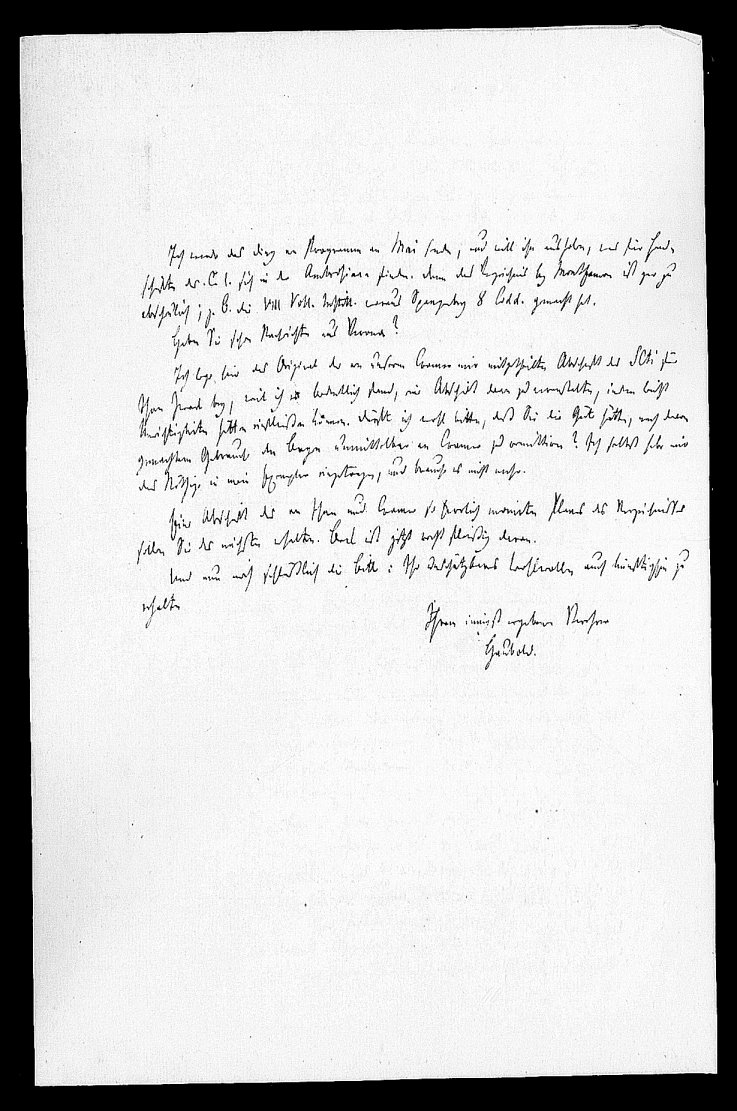 Ich werde das Ding an Programm an Mai senden, und will ihn auffordern, was für Hand-
schriften des C. I. sich in der Ambrosiana finden. Denn das Verzeichnis bey Montfaucon ist gar zu
oberflächlich; z. B. die VIII Voll. Instit. woraus Spangenberg 8 Codd. gemacht hat.
Haben Sie schon Nachrichten aus Verona?
Ich lege hier das Original der an unsern Cramer mir mitgetheilten Abschrift des SCti für
Ihren Zweck bey, weil ich es bedenklich fand, eine Abschrift davon zu veranstalten, indem leicht
Unrichtigkeiten hätten einfließen können. Dürft ich wohl bitten, daß Sie die Güte hätten, nach davon
gemachtem Gebrauche den Bogen unmittelbar an Cramer zu remittiren? Ich selbst habe mir
das Nöthige in mein Exemplar eingetragen, und brauche es nicht mehr.
Eine Abschrift des an Ihnen und Cramer so herrlich vermehrten Planes des Verzeichnisses
sollen Sie des nächsten erhalten. Beck ist jetzt recht fleißig daran.
Und nun noch schließlich die Bitte: Ihr unschätzbares Wohlwollen auch künftighin zu
erhalten
Ihrem innigst ergebenen Verehrer
Haubold.